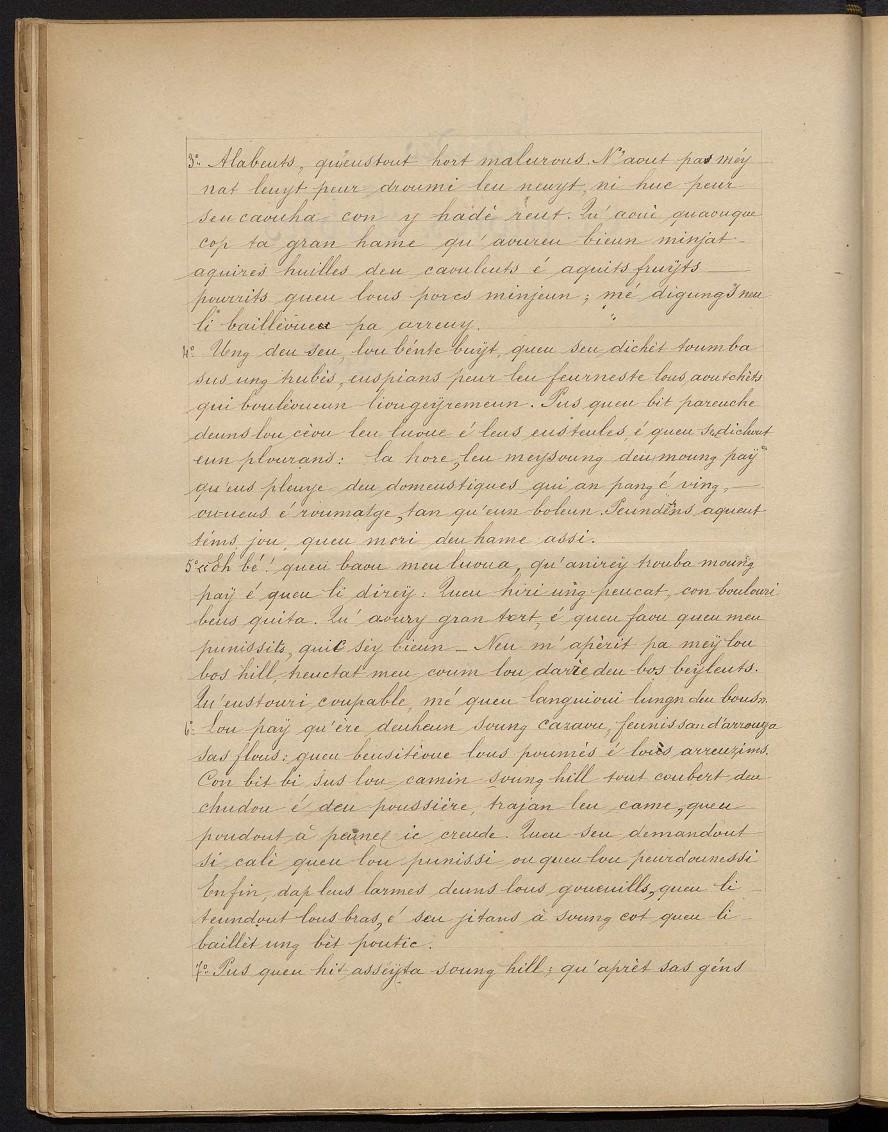 3º- Alabeuts, qu'eustout hort malurous. N'aout pas méy
nat leuyt peur droumi leu neuyt, ni huc peur
seu caouha con y hadè reut. Qu'aouè quaouque
cop ta gran hame qu'avureu bieun minjat
aquires huilles deu caouleuts é aquits fruÿts
pourrits queu lous porcs minjeun; mé digung neu
li baillèoueu pa arreuy.
4º Ung deu seu, lou bénte buÿt, queu seu dichèt toumba
sus ung trubès, euspians peur leu feurneste lous aoutchèts
qui boulèoueun liougeÿremeun. Pus queu bit pareuche
deuns lou cèou leu luoue é leus eusteules, é queu se dichout
eun plourans: la hore, leu meysoung deu moung paÿ
qu'eus pleuye deu domeustiques qui an pang é ving,
oueus é roumatge, tan qu'eun boleun. Peundens aqueut
téms jou, queu mori deu hame assi.
5º "Eh bé! queu baou meu luoua, qu'anirèy trouba moung
paÿ é queu li direÿ: Queu hiri ung peucat, con boulouri
beus quita. Qu'avury gran tort, é queu faou queu meu
punissits, quic sèy bieun - Neu m'apèrit pa meÿ lou
bos hill, treuctat meu coum lou darrè deu bos beyleuts.
Qu'eustouri coupable, mé queu languioui lungn deu bousn.
6º- Lou paÿ qu'ère deuheun soung cazaou, feunissan d'arrouza
sas flous: queu beusitèoue lous poumès é lous arreuzims.
Con bit bi sus lou camin soung hill tout coubert deu
chudou é deu poussière, trajan leu came, queu
poudout à peine ic creude. Queu seu demandout
si calè queu lou punissi ou queu lou peurdounessi
Enfin, dap leus larmes deuns lous goueuills, queu li
teundout lous bras, é seu jitans à soung cot queu li
baillèt ung bèt poutic.
7º- Pus queu hit asseÿta soung hill; qu'aprèt sas géns